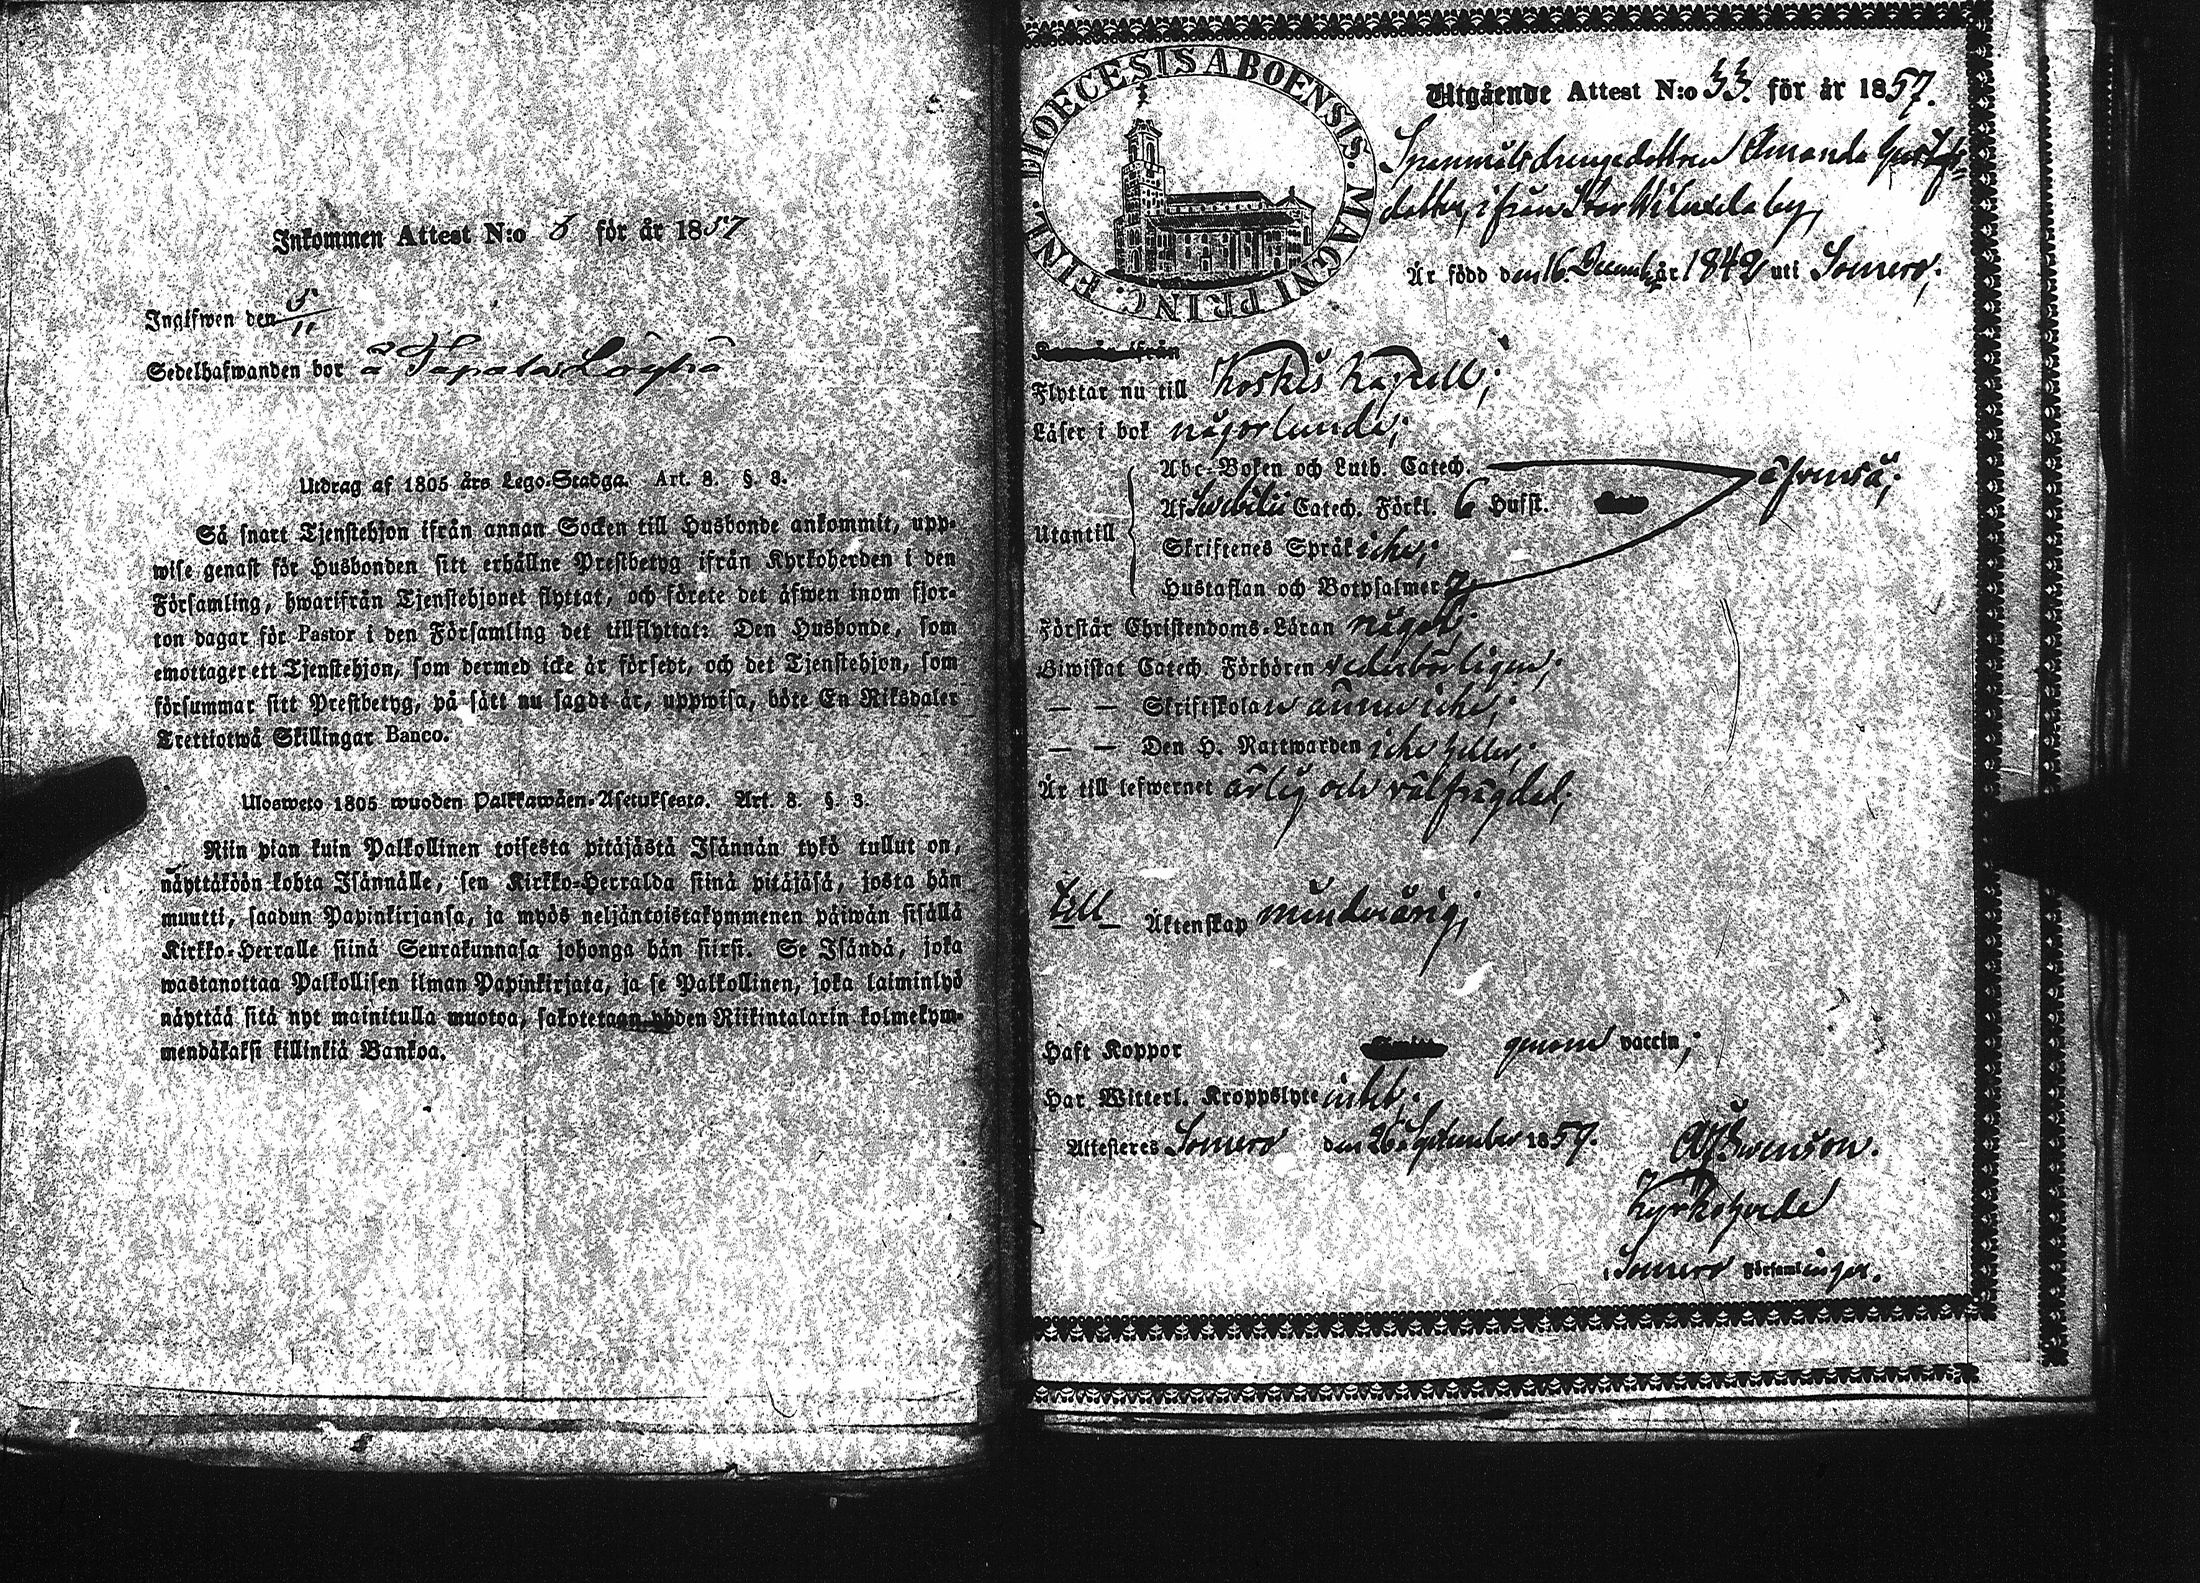 Inkommen Attest N:o 3 för år 1857
Ingifwen den 5/11
Sedelhafwanden bor å Tapala Löyhä
Utdrag af 1805 års Lego-Stadga. Art. 8. §. 3.
Så snart Tjenstehjon ifrån annan Socken till Husbonde ankommit, upp-
wise genast för Husbonden sitt erhållne Prestbetyg ifrån Kyrkoherden i den
Församling, hwarifrån Tjenstehjonet flyttat, och förete det äfwen inom fjor-
ton dagar för Pastor i den Församling det tillflyttat: Den Husbonde, som
emottager ett Tjenstehjon, som dermed icke är försedt, och det Tjenstehjon, som
försummar sitt Prestbetyg, på sätt nu sagdt är, uppwisa, böte En Riksdaler
Trettiotwå Skillingar Banco.
Ulosweto 1805 wuoden Palkkawäen-Asetuksesta. Art. 8. §. 3.
Niin pian kuin Palkollinen toisesta pitäjästä Isännän tykö tullut on,
näyttäköön kohta Isännälle, sen Kirkko-Herralda siinä pitäjäsä, josta hän
muutti, saadun Papinkirjansa, ja myös neljäntoistakymmenen päiwän sisällä
Kirkko-Herralle siinä Seurakunnasa johonga hän siirsi. Se Isändä, joka
wastanottaa Palkollisen ilman Papinkirjata, ja se Palkollinen, joka laiminlyö
näyttää sitä nyt mainitulla muotoa, sakotetaan yhden Riikintalarin kolmekym-
mendäkaksi killinkiä Bankoa.
DIOECESIS ABOENSIS. MAGNI PRINC. FINL.
Utgående Attest N:o 33. för år 1857.
Spanmålsdrengedottren Amanda Gustafs-
dotter, ifrån by,
Är född den 16 Decemb. år 1842 uti Somero;
Kommen ifrån
Flyttar nu till Koskis Kapell;
Läser i bok någorlunda;
Utantill
Abc-Boken och Luth. Catech. äfvenså;
Af Swebilii Catech. Förkl. 6 Hufst.
Skriftenes Språk icke;
Hustaflan och Botpsalmer 7
Förstår Christendoms-Läran något;
Biwistat Catech. Förhören vederbörligen;
— — Skriftskolan ännu icke;
— — Den H. Nattwarden icke heller;
Är till lefwernet ärlig och välfrägdad;
till Äktenskap minderårig;
Haft Koppor genom vaccin;
Har Witterl. Kroppslyte intet;
Attesteres Somero den 26 September 1857.
Swenson.
Kyrkoherde
i Somero Församlingar.